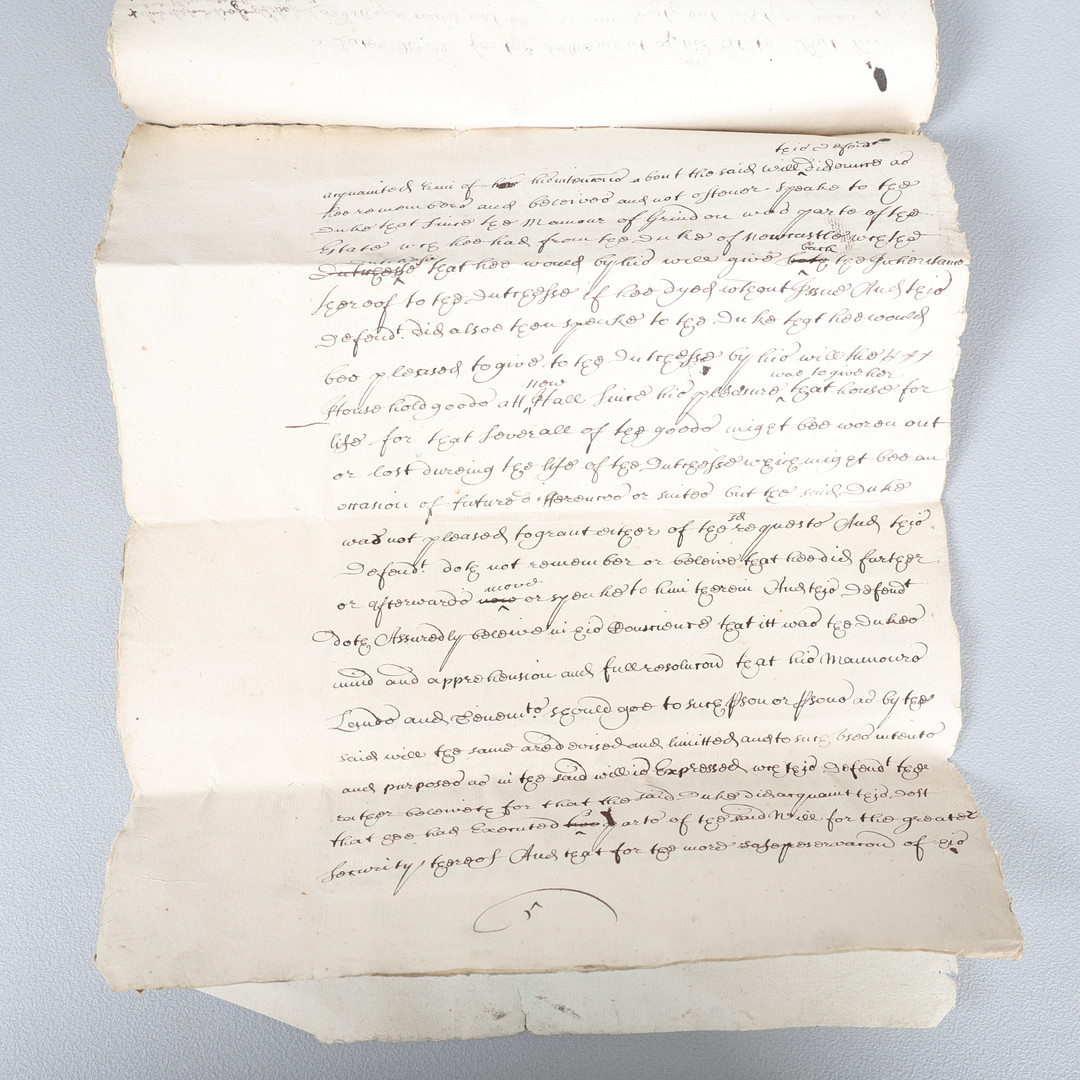 this defend.t
acquainted him of his intencions about the said will did once as
hee remembers and beleives and not oftener speake to the
Duke that since the Mannour of Grindon was parte of the
Estate wch hee had from the Duke of Newcastle wth the
back
Dutchesse that hee would by his will give the Inheritance
thereof to the Dutchesse if hee dyed wthout Issue And this
Defend.t did alsoe then speake to the Duke that hee would
bee pleased to give to the Dutchesse by his will the
now was to give her
Household goods att hall since his pleasure that house for
life for that severall of the goods might bee woren out
or lost dureing the life of the Dutchesse which might bee an
occasion of future differences or suites but the said Duke
sd
was not pleased to grant either of the requests And this
Defend.t doth not remember or beleive that hee did further
move
or afterwards or speake to him therein And this Defend.t
doth Assuredly beleive in his Conscience that itt was the Dukes
mind and apprehension and full resolucon that his Mannours
Lands and Tenem.ts should goe to such pson or psons as by the
said will the same are devised and limitted and to such uses intents
and purposes as in the said will is Expressed wch this Defend.t the
rather beleiveth for that the said Duke did acquaint this Deft
that hee had Executed parts of the said Will for the greater
security thereof And that for the more safe preservacon of his